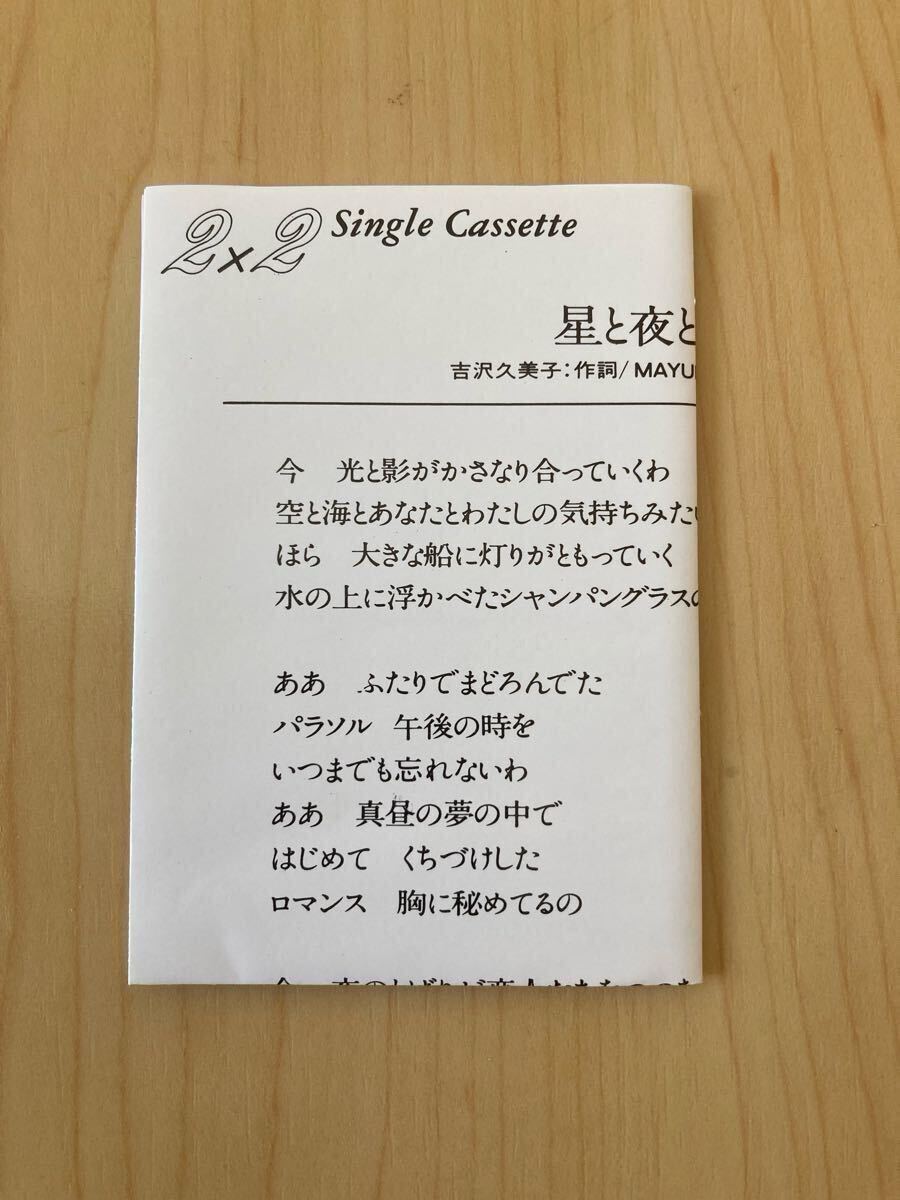 2×2 Single Cassette
星と夜と
吉沢久美子:作詞/MAYU
今 光と影がかさなり合っていくわ
空と海とあなたとわたしの気持ちみたい
ほら 大きな船に灯りがともっていく
水の上に浮かべたシャンパングラスの
ああ ふたりでまどろんでた
パラソル 午後の時を
いつまでも忘れないわ
ああ 真昼の夢の中で
はじめて くちづけした
ロマンス 胸に秘めてるの